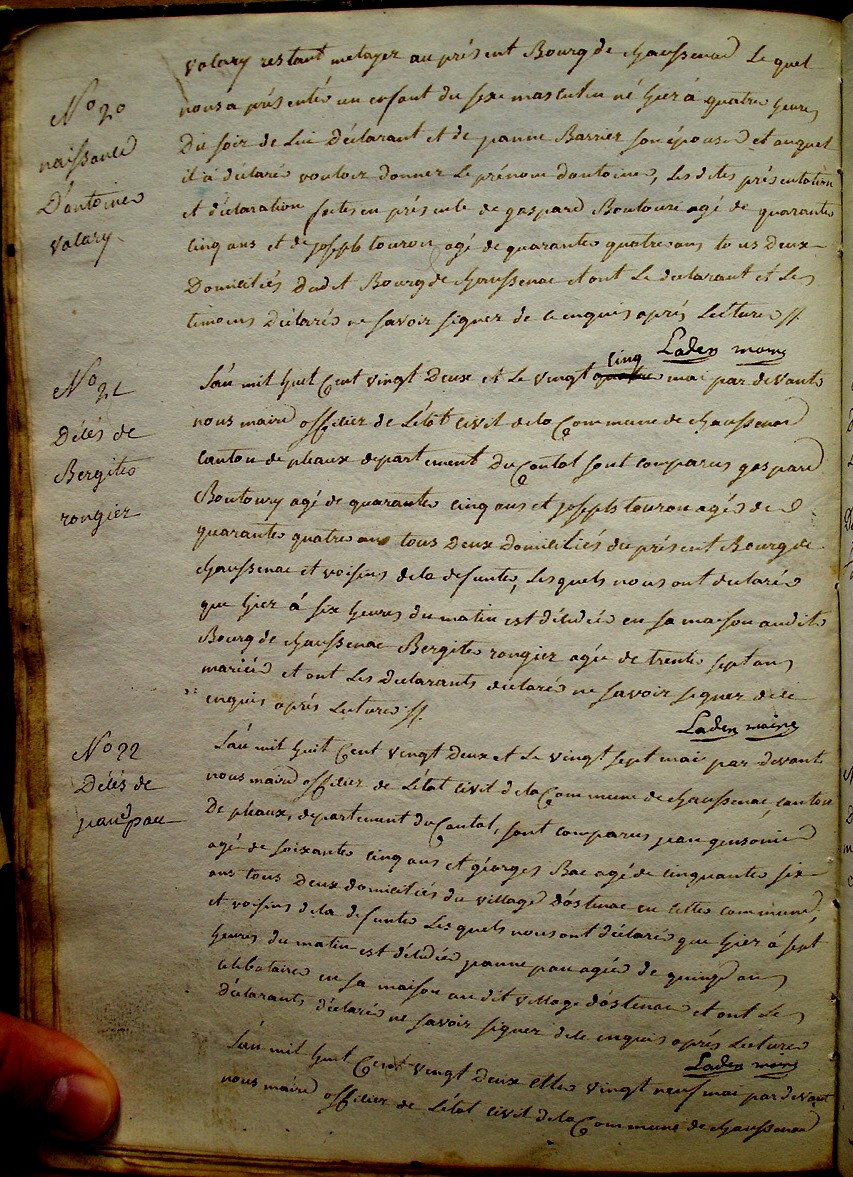 valary restant metayer au présent Bourg de chaussenac Lequel
nous a présenté un enfant du sexe masculin né hier à quatre heures
Du soir de Lui déclarant et de jeanne Barrier son épouse et auquel
il a déclaré vouloir donner Le prénom d'antoine, Les dites présentation
et déclaration faites en présence de gaspard Boutoury agé de quarante
cinq ans et de joseph touron agé de quarante quatre ans tous Deux
Domiciliés Dudit Bourg de chaussenac et ont Le déclarant et Les
temoins Déclaré ne savoir signer de ce enquis après Lecture
Laden maire
N° 20
naissance
D'antoine
valary
L'an mil huit Cent vingt Deux et Le vingt quatre cinq mai par devant
nous maire officier de L'état civil de la Commune de chaussenac
canton de pleaux departement du Cantal sont comparus gaspard
Boutoury agé de quarante cinq ans et joseph touron agé de
quarante quatre ans tous Deux domiciliés du présent Bourg de
chaussenac et voisins de la defunte, Lesquels nous ont declaré
que hier à six heures du matin est décédée en sa maison audit
Bourg de chaussenac Bergite rongier agée de trente sept ans
mariée et ont Les Déclarants déclaré ne savoir signer de ce
enquis après Lecture
Laden maire
N° 21
Décés de
Bergite
rongier
L'an mil huit Cent vingt Deux et Le vingt sept mai par devant
nous maire officier de L'état civil de la Commune de chaussenac, canton
De pleaux, departement du Cantal, sont comparus jean gensonie
agé de soixante cinq ans et géorges Bac agé de cinquante six
ans tous Deux domiciliés du village d'ostenac en cette commune,
et voisins de la defunte Lesquels nous ont déclaré que hier à sept
heures du matin est décédée jeanne pau agée de quinze ans
celibataire en sa maison au dit village d'ostenac et ont Les
déclarants déclaré ne savoir signer de ce enquis après Lecture
Laden maire
N° 22
Décés de
jeanne pau
L'an mil huit Cent vingt Deux et le vingt neuf mai par devant
nous maire officier de L'état civil de la Commune de chaussenac